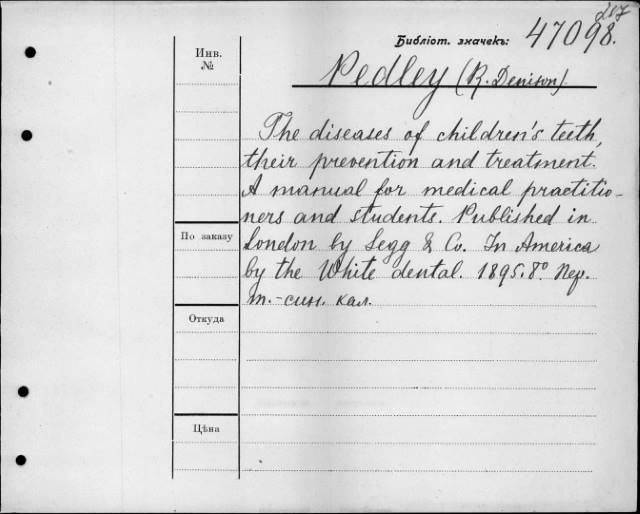 207
Библіот. значекъ: 47098.
Инв.
№
Pedley (R. Denison)
The diseases of children's teeth,
their prevention and treatment.
A manual for medical practitio-
ners and students. Published in
London by Segg & Co. In America
by the White dental. 1895. 8° Пер.
т.-син. кал.
По заказу
Откуда
Цѣна